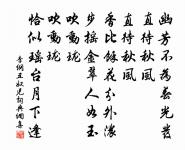 幽芳不為春光發
直待秋風
直待秋風
香比餘花分外濃
步搖金翠人如玉
吹動瓏璁
吹動瓏璁
恰似瑤台月下逢
李綱丑奴兒詞典網書